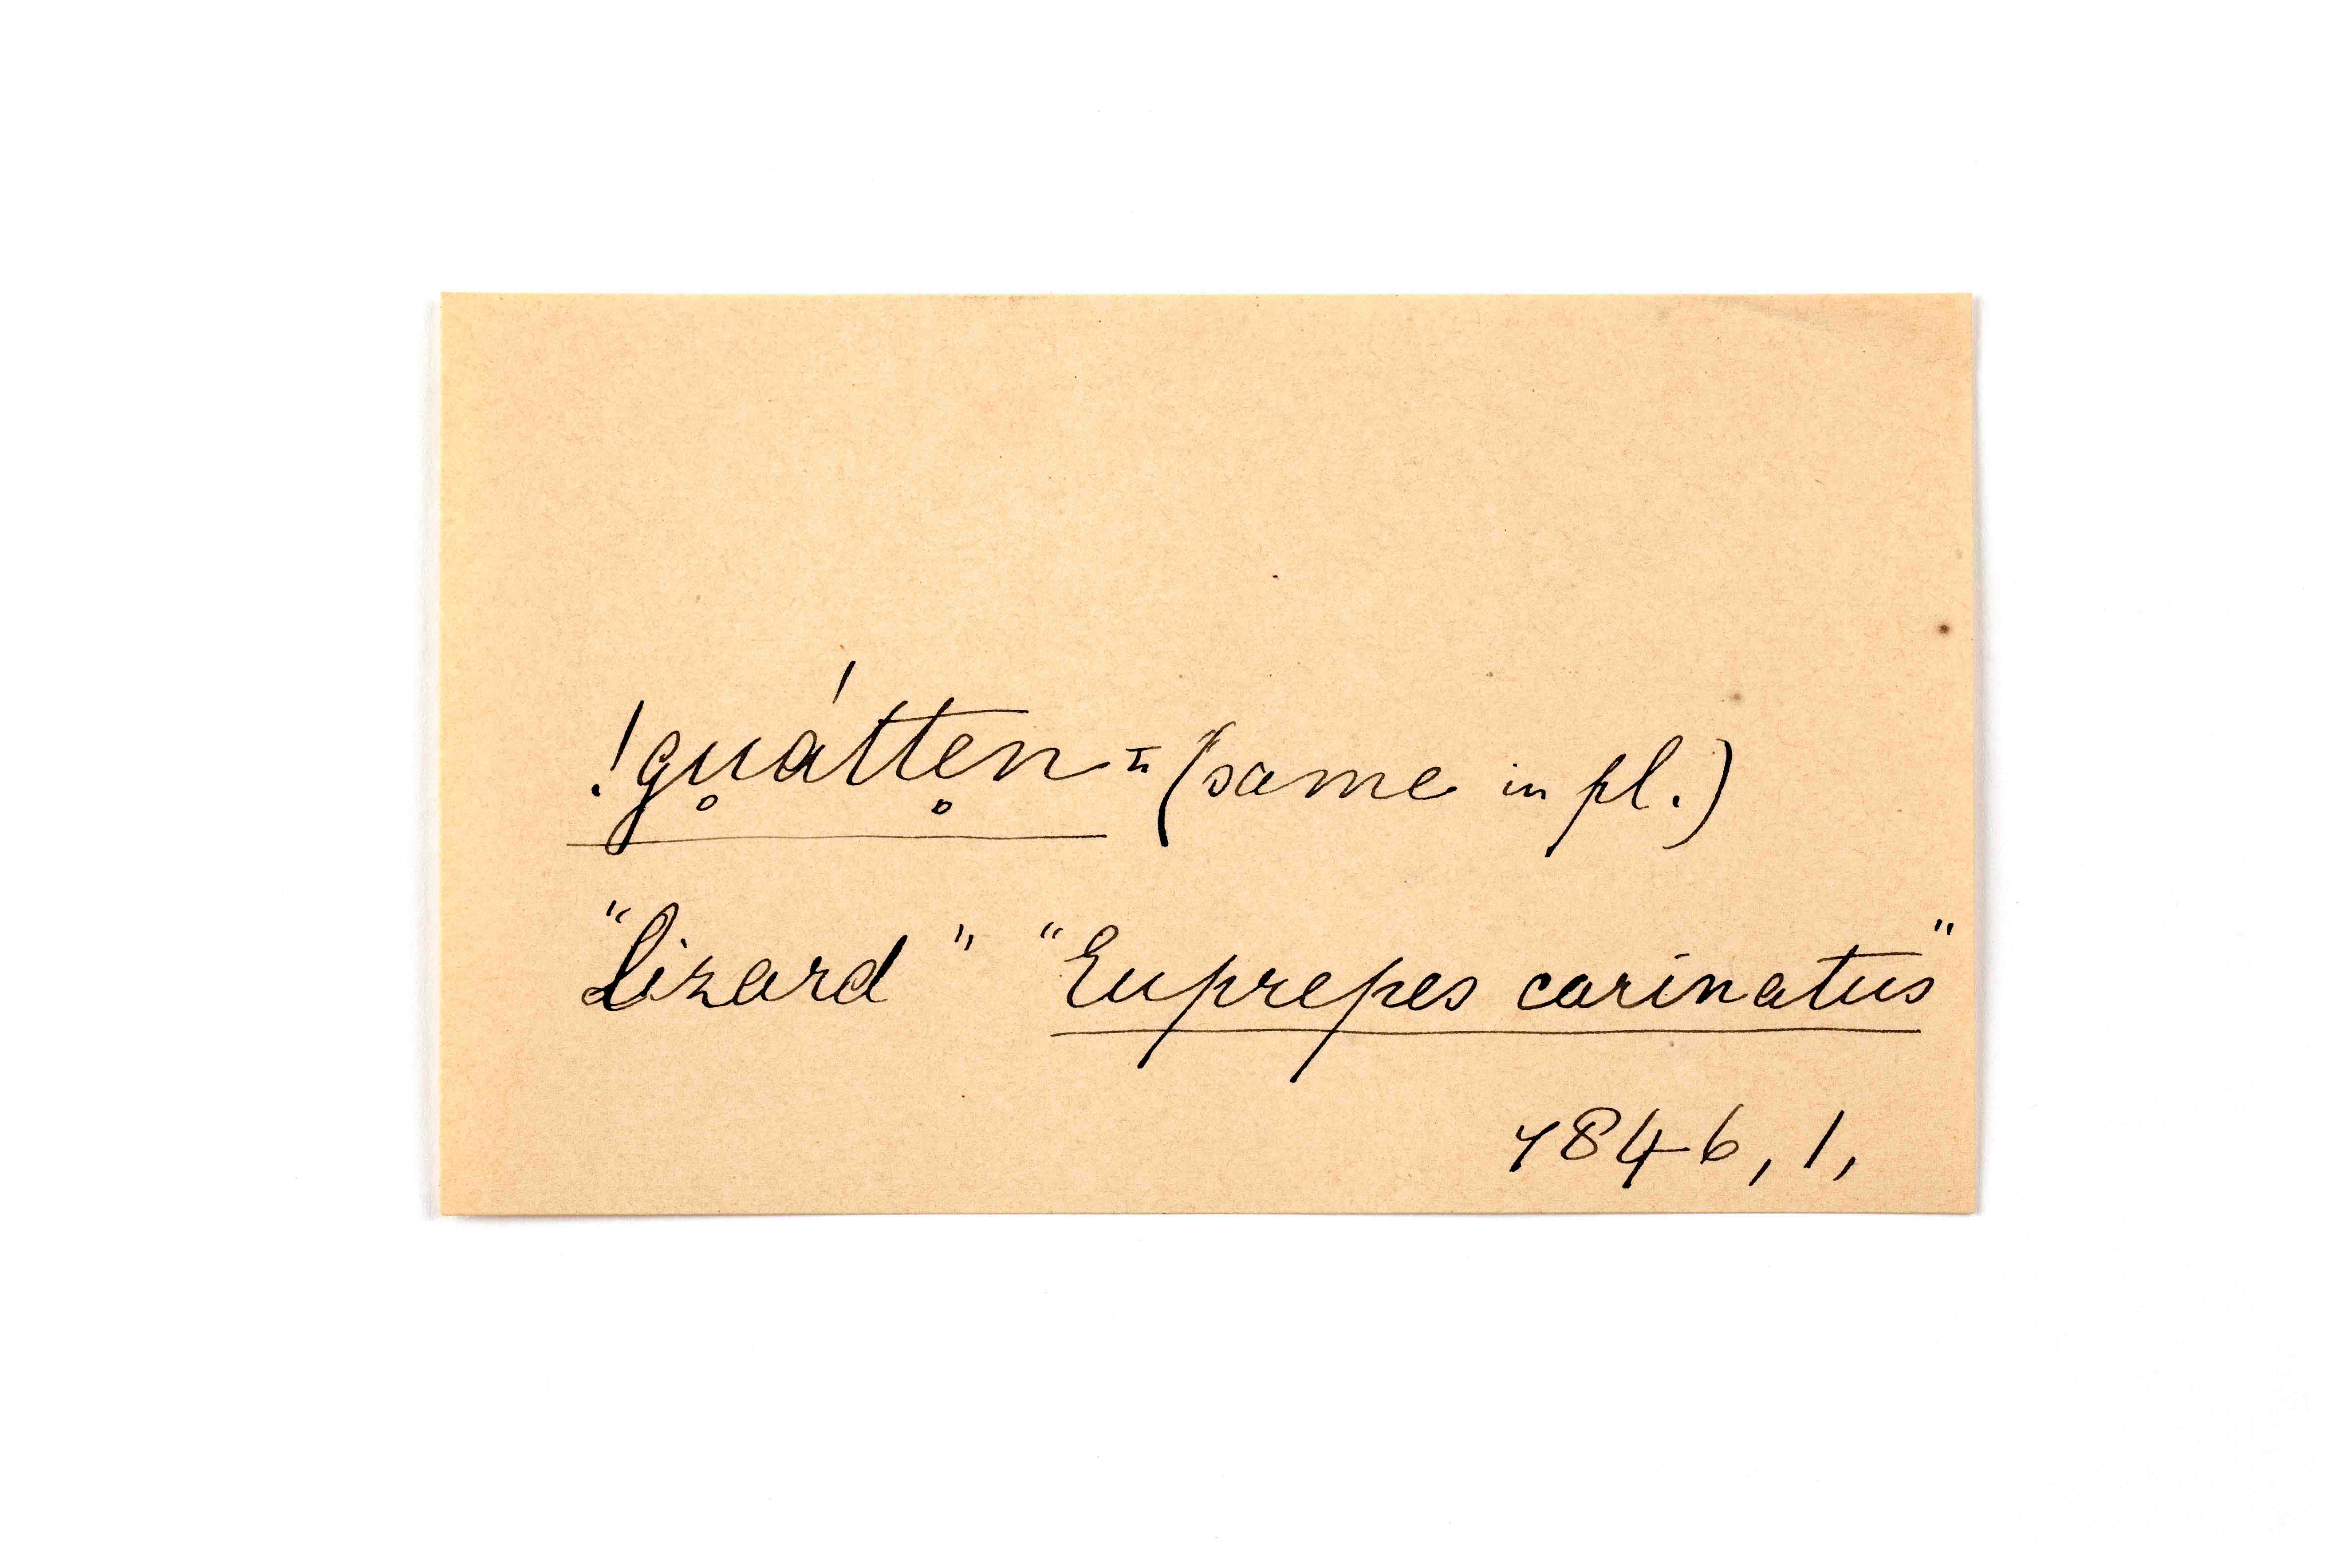 !gu̥átte̥n = (same in pl.)
"Lizard" "Euprepes carinatus"
1846, 1,